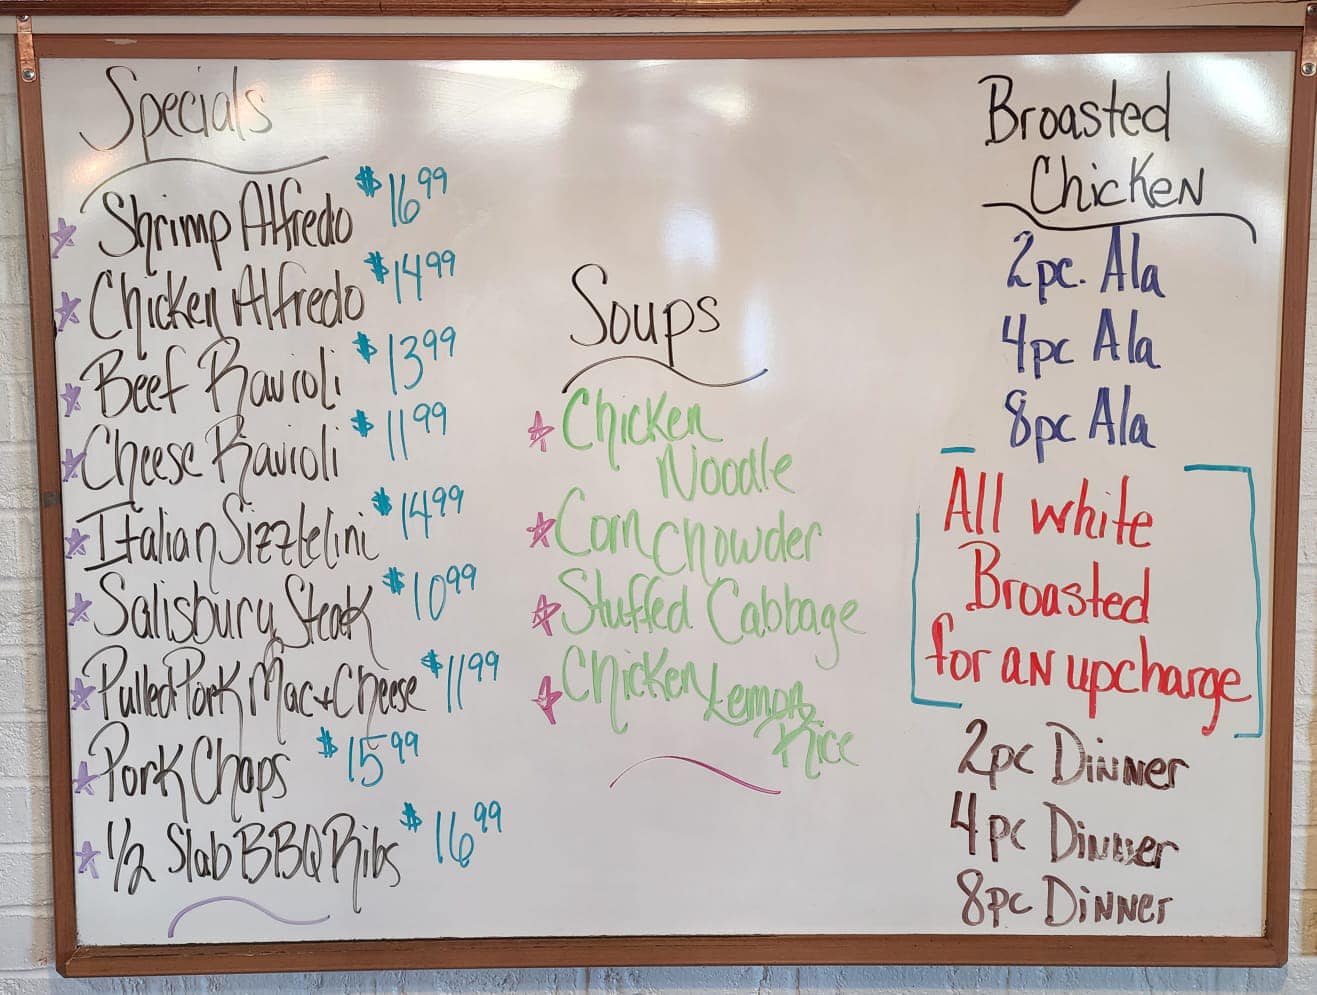 Specials
Shrimp Alfredo $16.99
Chicken Alfredo $14.99
Beef Ravioli $13.99
Cheese Ravioli $11.99
Italian Sizzlelini $14.99
Salisbury Steak $10.99
Pulled Pork Mac + Cheese $11.99
Pork Chops $15.99
1/2 Slab BBQ Ribs $16.99
Soups
Chicken
Noodle
Corn Chowder
Stuffed Cabbage
Chicken Lemon
Rice
Broasted
Chicken
2pc. Ala
4pc Ala
8pc Ala
All white
Broasted
for an upcharge
2pc Dinner
4pc Dinner
8pc Dinner